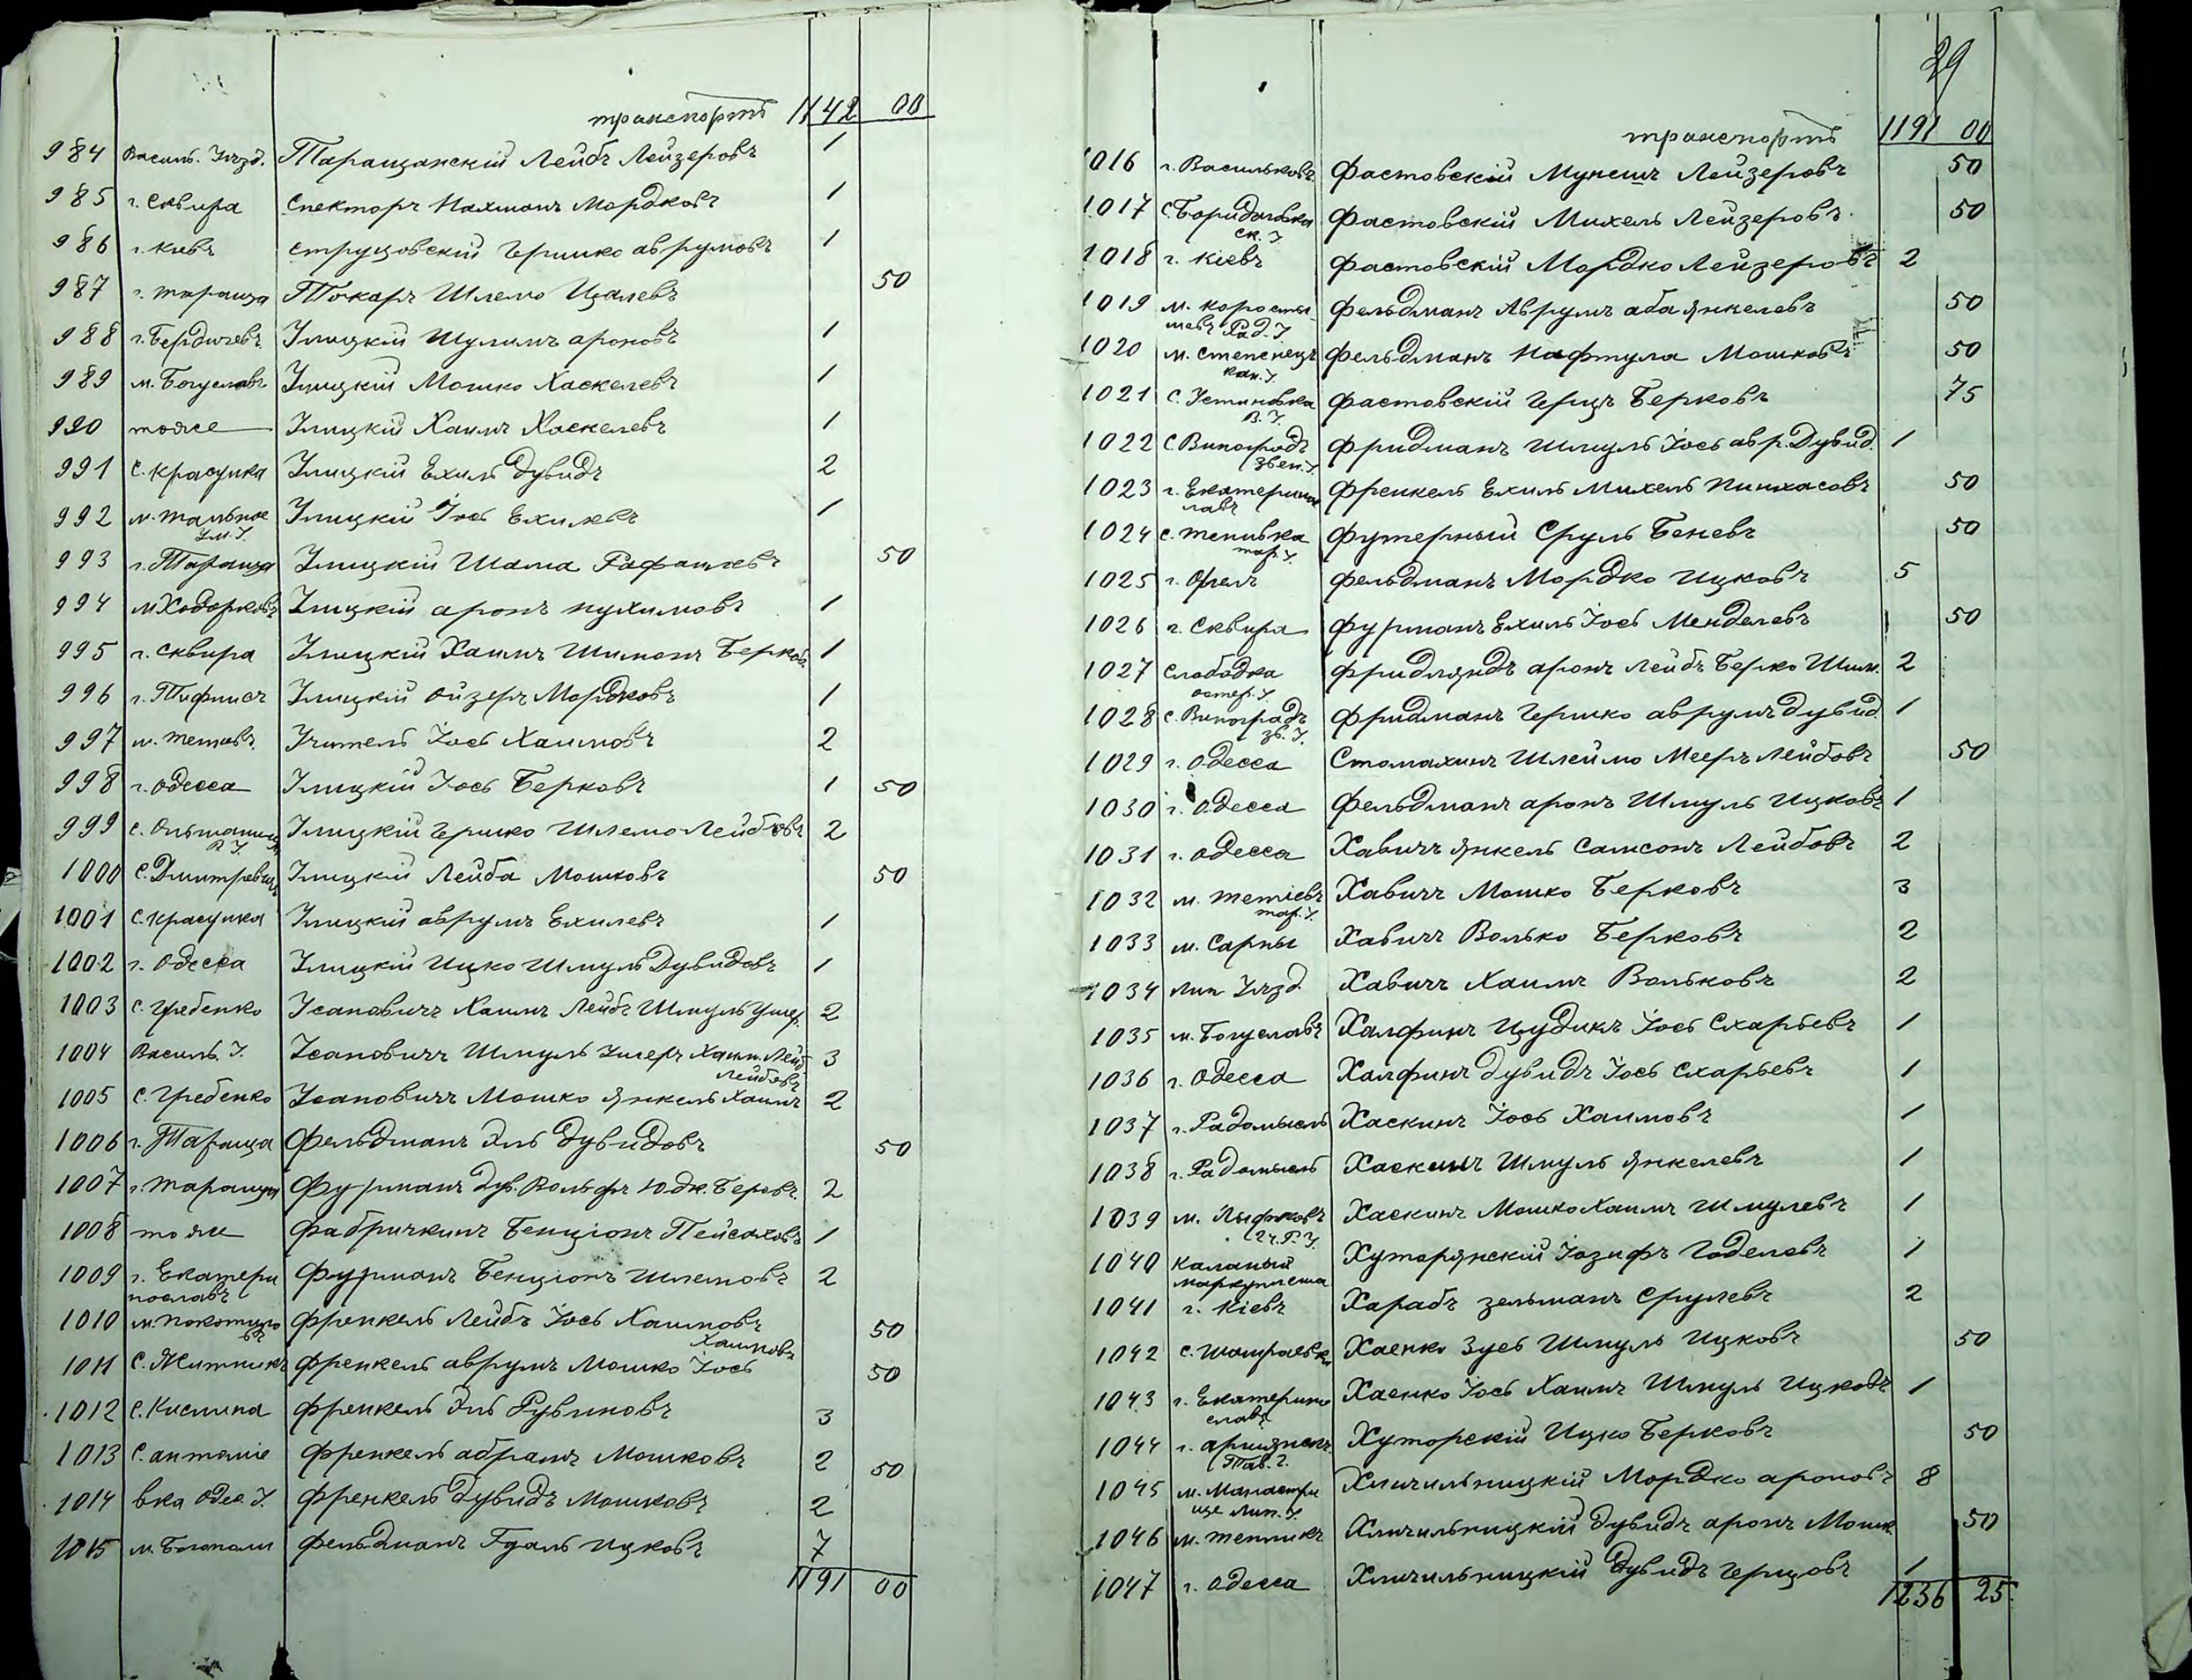 транспортъ 1142 00
984 Василь. Уѣзд. Таращанскій Лейбъ Лейзеровъ 1
985 г. Сквира Спекторъ Нахманъ Мордковъ 1
986 г. Кіевъ Струцовскій Гершко Аврумовъ 1
987 г. Тараща Токаръ Шлемо Ицалевъ 50
988 г. Бердичевъ Улицкій Шулимъ Ароновъ 1
989 м. Богуславъ Улицкій Мошко Хаскелевъ 1
990 тоже Улицкій Хаимъ Хаскелевъ 1
991 С. Красунка Улицкій Ехиль Дувидъ 2
992 м. Тальное Улицкій Іось Ехилевъ 1
Ум. У.
993 г. Тараща Улицкій Шама Рафаилевъ 50
994 м. Ходорковъ Улицкій Аронъ Нухимовъ 1
995 г. Сквира Улицкій Хаимъ Шимонъ Берков 1
996 г. Тифлисъ Улицкій Ойзеръ Мордковъ 1
997 м. Тетіевъ Учитель Іось Хаимовъ 2
998 г. Одесса Улицкій Іось Берковъ 1 50
999 с. Ольшаница Улицкій Гершко Шлемо Лейбовъ 2
1000 С. Дмитревич Улицкій Лейба Мошковъ 50
1001 С. Красунка Улицкій Аврумъ Ехилевъ 1
1002 г. Одесса Улицкій Ицко Шмуль Дувидовъ 1
1003 с. Гребенко Усановичъ Хаимъ Лейбъ Шмуль Ушер. 2
1004 Василь. У. Усановичъ Шмуль Ушеръ Хаим. Лейб 3
Лейбовъ
1005 С. Гребенко Усановичъ Мошко Янкель Хаимъ 2
1006 г. Тараща Фельдманъ Эль Дувидовъ 50
1007 г. Тараща Фурманъ Дув. Вольфъ Юдк. Беровъ 2
1008 тоже Фабричкинъ Бенціонъ Пейсаховъ 1
1009 г. Екатери Фурманъ Бенціонъ Шлемовъ 2
нославъ
1010 м. Покотило Френкель Лейбъ Іось Хаимовъ 50
во Хаимовъ
1011 С. Житникъ Френкель Аврумъ Мошко Іось 50
1012 С. Кислина Френкель Эль Рувиновъ 3
1013 С. Антоніе Френкель Абрамъ Мошковъ 2 50
1014 вка Одес. У. Френкель Дувидъ Мошковъ 2
1015 м. Богополи Фельдманъ Гдаль Ицковъ 7
1191 00
29
транспортъ 1191 00
1016 г. Васильковъ Фастовскій Мунешъ Лейзеровъ 50
1017 С. Боридовка Фастовскій Михель Лейзеровъ 50
Ск. У.
1018 г. Кіевъ Фастовскій Мордко Лейзеровъ 2
1019 м. Коросты Фельдманъ Аврумъ Аба Янкелевъ 50
шевъ Рад. У.
1020 м. Степенецъ Фельдманъ Нафтула Мошковъ 50
Кан. У.
1021 С. Устиновка Фастовскій Герцъ Берковъ 75
В. У.
1022 С. Виноградъ Фридманъ Шмуль Іось Авр. Дувид. 1
Звен. У.
1023 г. Екатерино Френкель Ехиль Михель Пинхасовъ 50
славъ
1024 с. Тепивка Футерный Сруль Беневъ 50
Тар. У.
1025 г. Орелъ Фельдманъ Мордко Ицковъ 5
1026 г. Сквира Фурманъ Ехиль Іось Менделевъ 50
1027 Слободка Фридляндъ Аронъ Лейбъ Берко Шим. 2
Остер. У.
1028 с. Виноградъ Фридманъ Гершко Аврумъ Дувид. 1
Зв. У.
1029 г. Одесса Стомахинъ Шлеймо Мееръ Лейбовъ 50
1030 г. Одесса Фельдманъ Аронъ Шмуль Ицковъ 1
1031 г. Одесса Хавичъ Янкель Самсонъ Лейбовъ 2
1032 м. Тетіевъ Хавичъ Мошко Берковъ 3
Тар. У.
1033 м. Сарны Хавичъ Волько Берковъ 2
1034 Лип Уѣзд Хавичъ Хаимъ Вольковъ 2
1035 м. Богуславъ Халфинъ Цудикъ Іось Схарьевъ 1
1036 г. Одесса Халфинъ Дувидъ Іось Схарьевъ 1
1037 г. Радомысль Хаскинъ Іось Хаимовъ 1
1038 г. Радомысль Хаскинъ Шмуль Янкелевъ 1
1039 Хаскинъ Мошко Хаимъ Шмулевъ 1
1040 Хуторянскій Іозифъ Годелевъ 1
1041 г. Кіевъ Харабъ Зельманъ Срулевъ 2
1042 с. Шамраевка Хаенко Зусь Шмуль Ицковъ 50
1043 г. Екатерино Хаенко Іось Хаимъ Шмуль Ицковъ 1
славъ
1044 Хуторскій Ицко Берковъ 50
Тав. Г.
1045 м. Манастри Хмильницкій Мордко Ароновъ 8
ще Лип. У.
1046 м. Тепликъ Хмильницкій Дувидъ Аронъ Мошк. 50
1047 г. Одесса Хмильницкій Дувидъ Герцовъ 1
1236 25